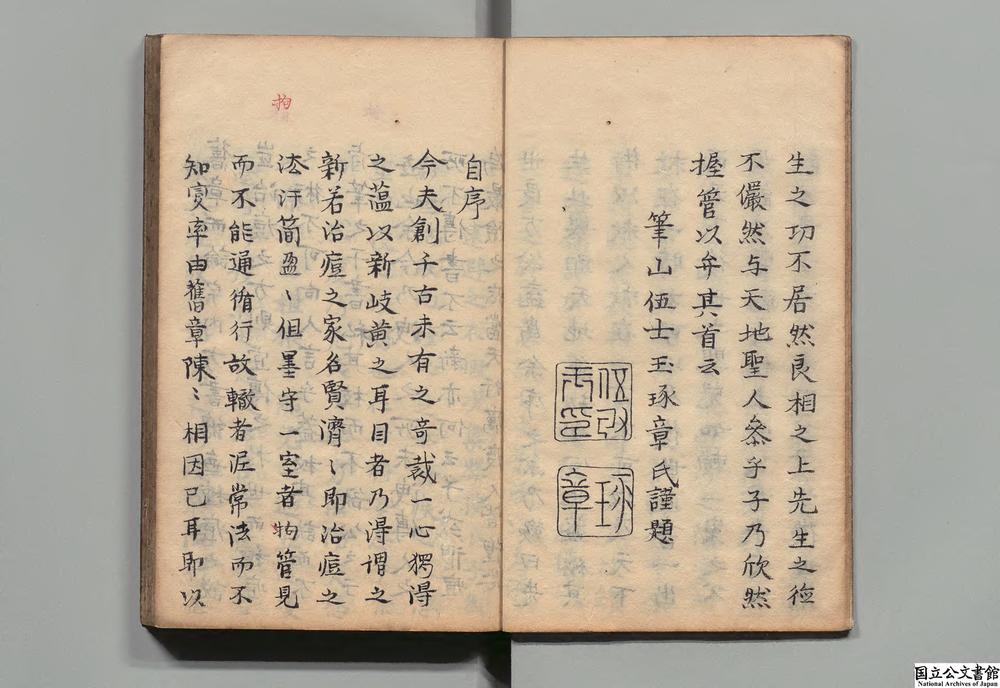 生之功不居然良相之上先生之德
不儼然与天地聖人叅乎子乃欣然
握管以弁其首云
筆山伍士玉琢章氏謹題
琢章
自序
今夫創千古未有之奇裁一心獨得
之蘊以新岐黄之耳目者乃得謂之
新若治痘之家名賢濟〻即治痘之
法汗简盈〻但墨守一室者拘管見
而不能通循行故轍者泥常法而不
知变率由舊章陳〻相因已耳即以
拘
国立公文書館
National Archives of Japan